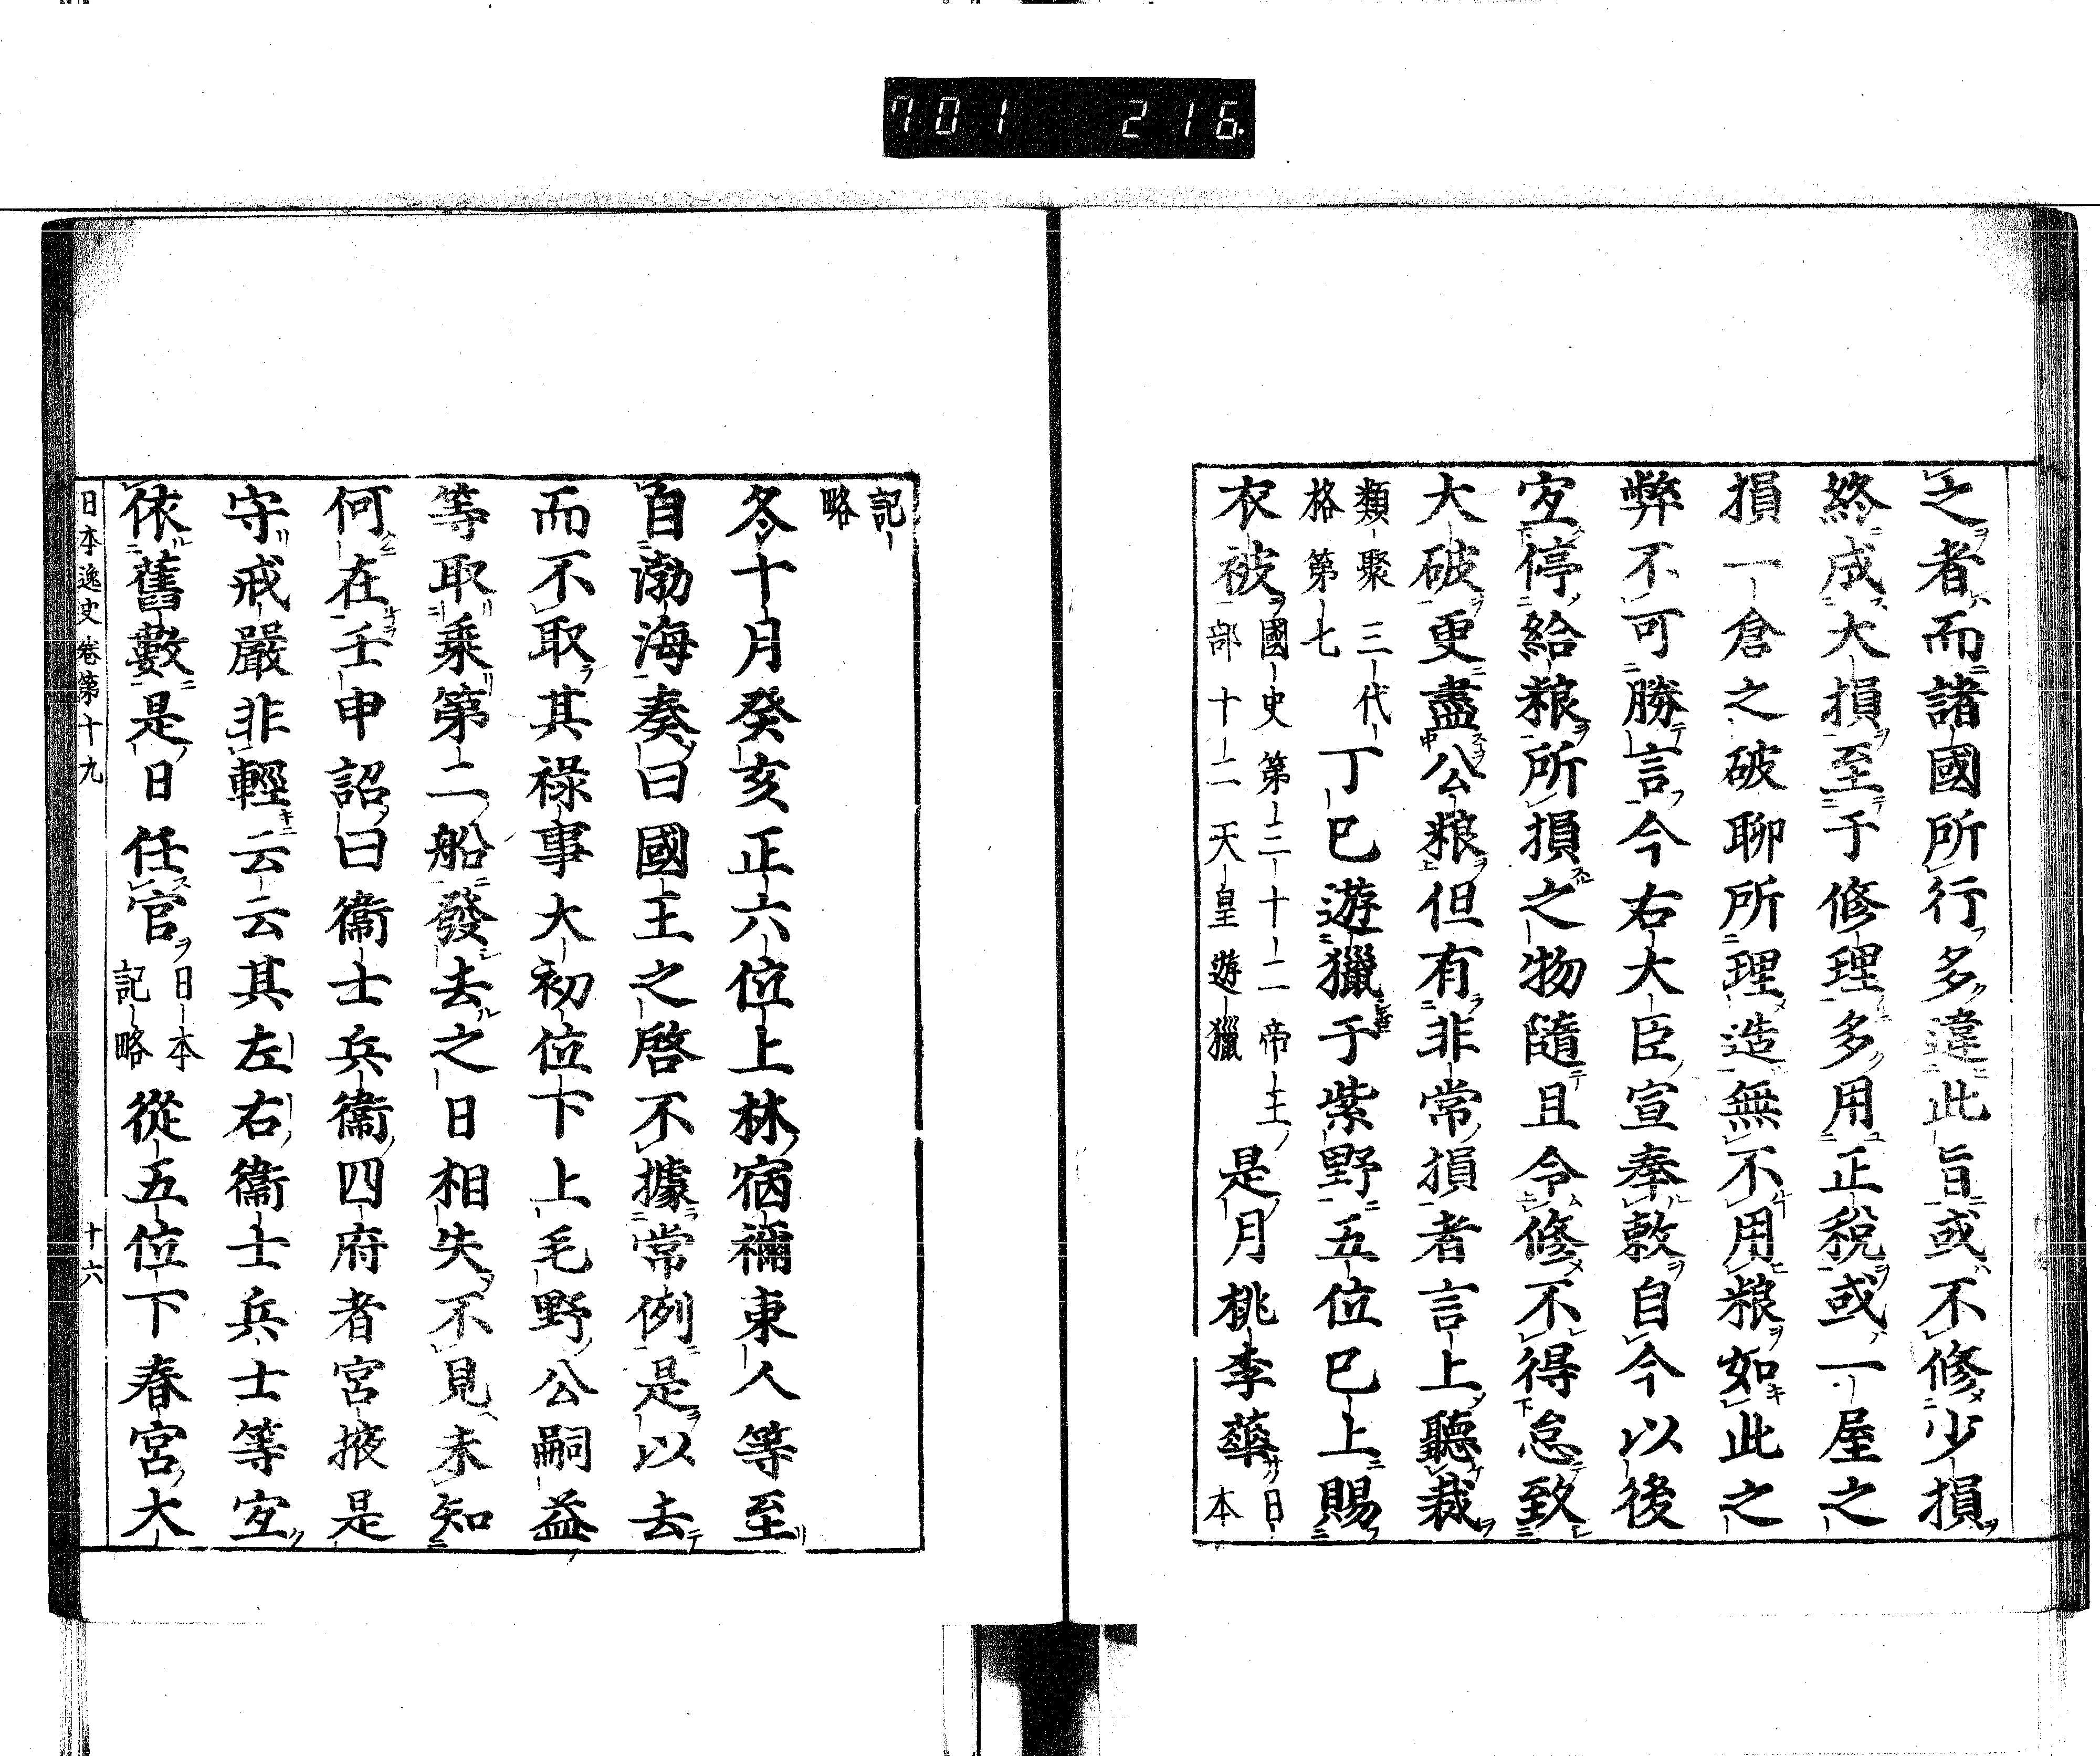 701 216
之者而諸國所行多違此旨或不修少損
終成大損至于修理多用正稅或一屋之
損一倉之破聊所理造無不用粮如此之
弊不可勝言今右大臣宣奉敕自今以後
宜停給粮所損之物隨且令修不得怠致
大破更盡公粮但有非常損者言上聽裁
類聚三代
格第七
丁巳遊獵于紫野五位已上賜
衣被
國史第三十二帝王
部十二天皇遊獵
是月桃李蘂
日
本
記
略
冬十月癸亥正六位上林宿禰東人等至
自渤海奏曰國王之啓不據常例是以去
而不取其祿事大初位下上毛野公嗣益
等取乘第二船發去之日相失不見未知
何在壬申詔曰衞士兵衞四府者宮掖是
守戒嚴非輕云云其左右衞士兵士等宜
依舊數是日任官
日本
記略
從五位下春宮大
日本逸史卷第十九 十六